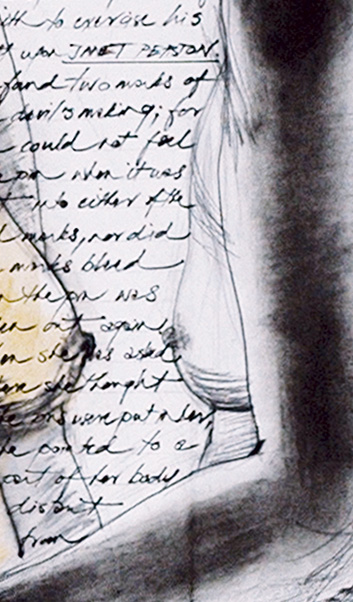 with to exercise his
upon JANET PEASTON.
found two marks of
devil's making; for
could not feel
pin when it was
into either of the
marks, nor did
marks bleed
the pin was
out again
she was asked
she thought
pins were put in her,
pointed to a
part of her body
distant
from